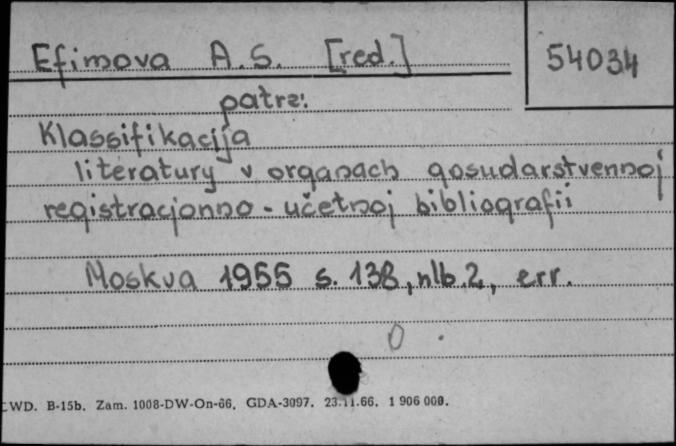 Efimova A.S. [red.]
54034
patrz:
Klassifikacija
literatury v organach gosudarstvennoj
registracjonno-učetnoj bibliografii
Moskva 1955 s. 138, nlb. 2, err.
0.
CWD. B-15b. Zam. 1008-DW-On-66. GDA-3097. 23.11.66. 1 906 000.